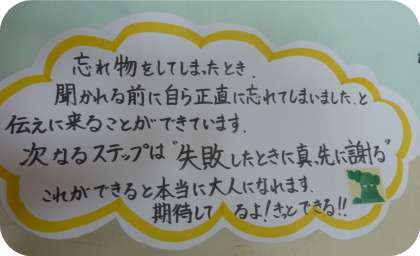 忘れ物をしてしまったとき、
聞かれる前に自ら正直に忘れてしまいました、と
伝えに来ることができています。
次なるステップは“失敗したときに真っ先に謝る”
これができると本当に大人になれます。
期待してるよ!きっとできる!!